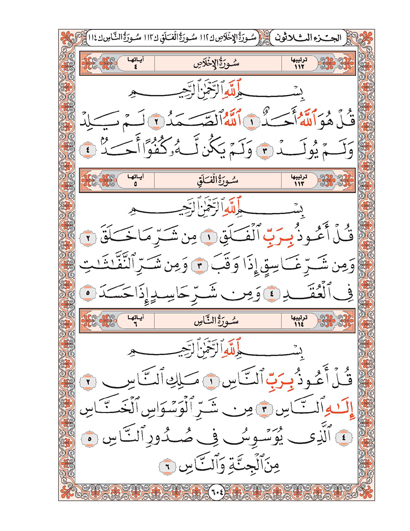 الجزء الثلاثون سورة الإخلاص ك ١١٢ سورة الفلق ك ١١٣ سورة الناس ك ١١٤
ترتيبها ١١٢ سُورَةُ الإِخْلَاصِ آياتها ٤
بِسْمِ ٱللَّهِ ٱلرَّحْمَٰنِ ٱلرَّحِيمِ
قُلْ هُوَ ٱللَّهُ أَحَدٌ ١ ٱللَّهُ ٱلصَّمَدُ ٢ لَمْ يَلِدْ
وَلَمْ يُولَدْ ٣ وَلَمْ يَكُن لَّهُۥ كُفُوًا أَحَدٌۢ ٤
ترتيبها ١١٣ سُورَةُ الْفَلَقِ آياتها ٥
بِسْمِ ٱللَّهِ ٱلرَّحْمَٰنِ ٱلرَّحِيمِ
قُلْ أَعُوذُ بِرَبِّ ٱلْفَلَقِ ١ مِن شَرِّ مَا خَلَقَ ٢
وَمِن شَرِّ غَاسِقٍ إِذَا وَقَبَ ٣ وَمِن شَرِّ ٱلنَّفَّٰثَٰتِ
فِى ٱلْعُقَدِ ٤ وَمِن شَرِّ حَاسِدٍ إِذَا حَسَدَ ٥
ترتيبها ١١٤ سُورَةُ النَّاسِ آياتها ٦
بِسْمِ ٱللَّهِ ٱلرَّحْمَٰنِ ٱلرَّحِيمِ
قُلْ أَعُوذُ بِرَبِّ ٱلنَّاسِ ١ مَلِكِ ٱلنَّاسِ ٢
إِلَٰهِ ٱلنَّاسِ ٣ مِن شَرِّ ٱلْوَسْوَاسِ ٱلْخَنَّاسِ
٤ ٱلَّذِى يُوَسْوِسُ فِى صُدُورِ ٱلنَّاسِ ٥
مِنَ ٱلْجِنَّةِ وَٱلنَّاسِ ٦
٦٠٤